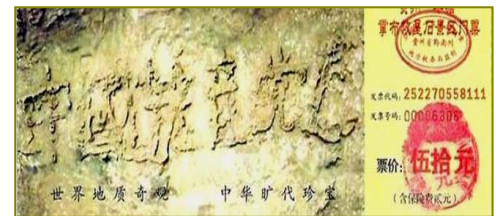 中國共产党亡
世界地质奇观 中华旷代珍宝
掌布救星石景区门票
贵州省黔南州
发票代码: 252270558111
发票号码: 00006306
票价: 伍拾元
(含保险费贰元)